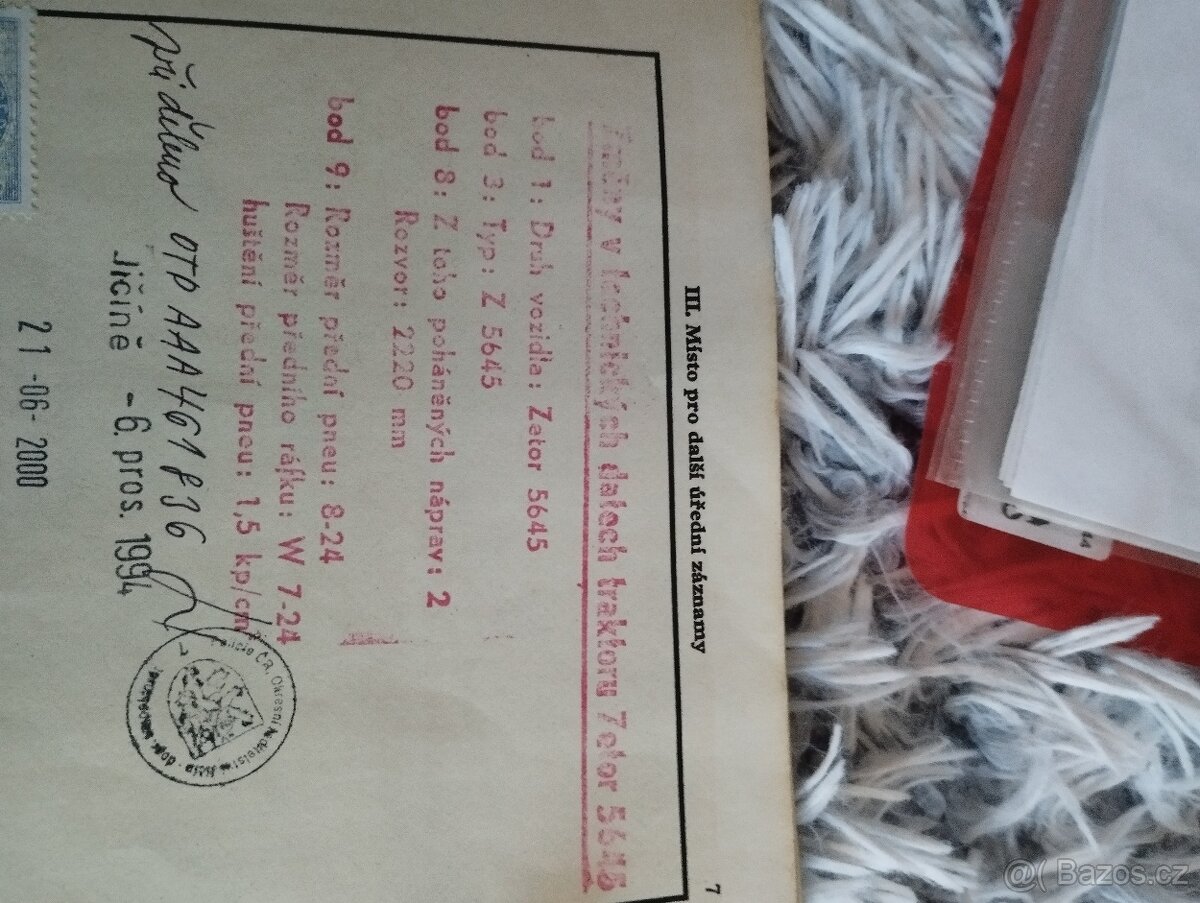 7
III. Místo pro další úřední záznamy
Změny v technických datech traktoru Zetor 5645
bod 1: Druh vozidla: Zetor 5645
bod 3: Typ: Z 5645
bod 8: Z toho poháněných náprav: 2
Rozvor: 2220 mm
bod 9: Rozměr přední pneu: 8-24
Rozměr předního ráfku: W 7-24
huštění přední pneu: 1,5 kp/cm
přiděleno OTP AAA461836
Jičíně -6. pros. 1994
Policie ČR Okresní ředitelství Jičín
21-06-2000
@( Bazos.cz